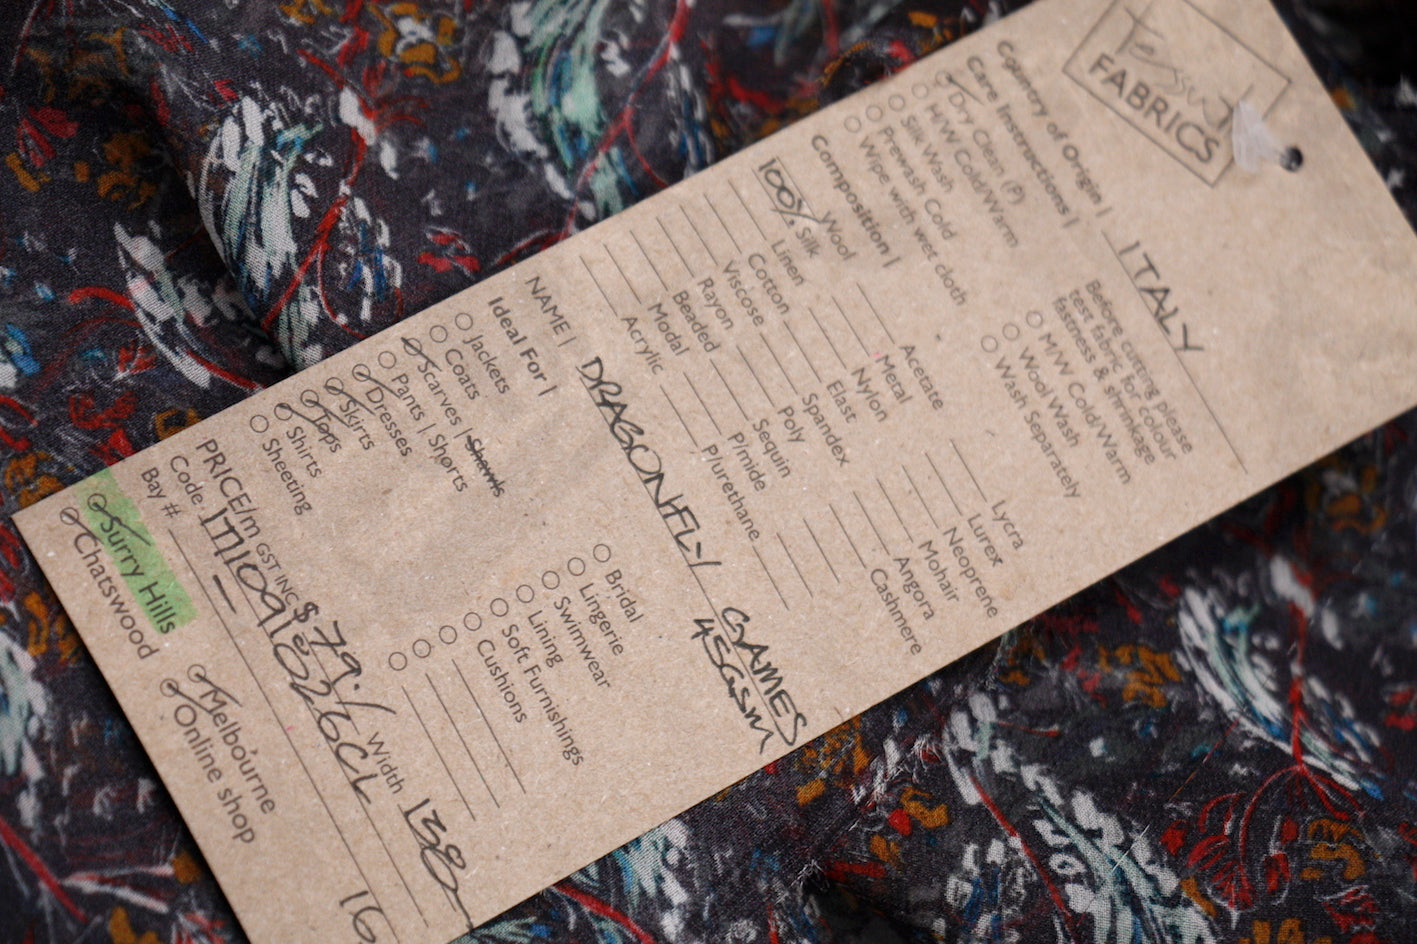 Tessuti
FABRICS
Country of Origin | ITALY
Care Instructions |
Dry Clean (P)
H/W Cold/Warm
Silk Wash
Prewash Cold
Wipe with wet cloth
Before cutting please
test fabric for colour
fastness & shrinkage
M/W Cold/Warm
Wool Wash
Wash Separately
Composition |
Wool
100% Silk
Linen
Cotton
Viscose
Rayon
Beaded
Modal
Acrylic
Acetate
Metal
Nylon
Elast
Spandex
Poly
Sequin
P/mide
Plurethane
Lycra
Lurex
Neoprene
Mohair
Angora
Cashmere
NAME | DRAGONFLY GAMES
45GSM
Ideal For |
Jackets
Coats
Scarves | Shawls
Pants | Shorts
Dresses
Skirts
Tops
Shirts
Sheeting
Bridal
Lingerie
Swimwear
Lining
Soft Furnishings
Cushions
PRICE/m GST INC $79./ Width 138
Code:
Bay #
16
Surry Hills
Chatswood
Melbourne
Online shop